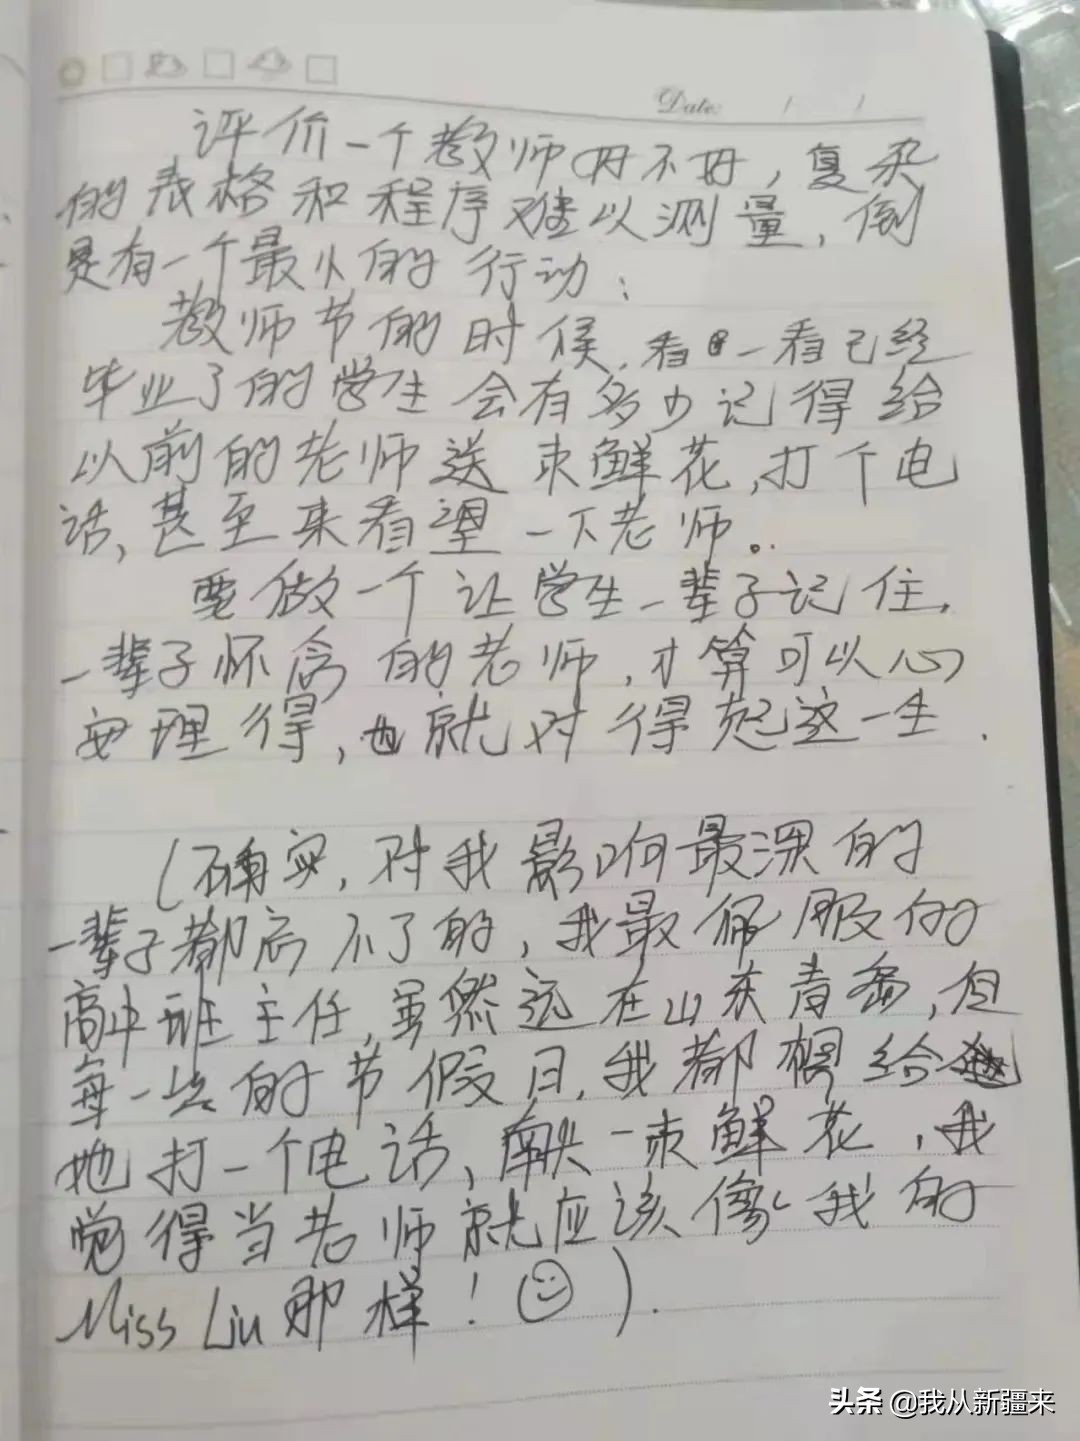 Date: / /
评价一个教师好不好，复杂
的表格和程序难以测量，倒
是有一个最小的行动：
教师节的时候，看一看已经
毕业了的学生会有多少记得给
以前的老师送束鲜花，打个电
话，甚至来看望一下老师。
要做一个让学生一辈子记住，
一辈子怀念的老师，才算可以心
安理得，也就对得起这一生．
（确实，对我影响最深的
一辈子都忘不了的，我最佩服的
高中班主任，虽然远在山东青岛，但
每一次的节假日，我都想给
她打一个电话，献一束鲜花，我
觉得当老师就应该像我的
Miss Liu那样！）．
头条 @我从新疆来